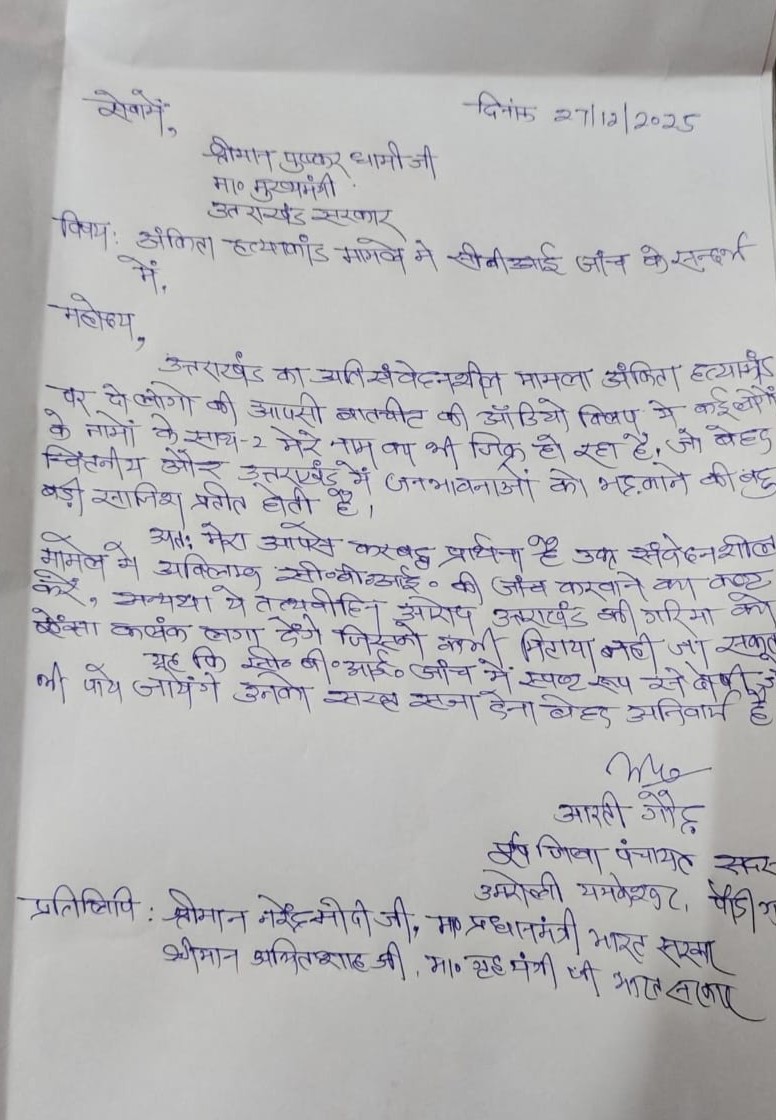 सेवामें,
दिनांक 27/12/2025
श्रीमान पुष्कर धामी जी
मा० मुख्यमंत्री
उत्तराखंड सरकार
विषय: अंकिता हत्याकांड मामले मे सीबीआई जांच के सन्दर्भ
में,
महोदय,
उत्तराखंड का अतिसंवेदनशील मामला अंकिता हत्याकांड
पर दो लोगों की आपसी बातचीत की ऑडियो क्लिप मे कई लोगों
के नामों के साथ-2 मेरे नाम का भी जिक्र हो रहा है, जो बेहद
चिंतनीय और उत्तराखंड में जनभावनाओं को भड़काने की बहु
बड़ी साजिश प्रतीत होती है।
अत: मेरा आपसे करबद्ध प्रार्थना है उक्त संवेदनशील
मामले मे अविलम्ब सी०बी०आई० की जांच करवाने का कष्ट
करें, अन्यथा ये तथ्यविहिन आरोप उत्तराखंड की गरिमा को
ऐसा कलंक लगा देंगे जिसको कभी मिटाया नही जा सकता
यह कि सी०बी०आई० जांच में स्पष्ट रूप से दोषी
भी पाये जायेंगे उनको सख्त सजा देना बेहद अनिवार्य है
आरती गौड़
पूर्व जिला पंचायत सदस्
उमरोली यमकेश्वर, पौड़ी ग
प्रतिलिपि: श्रीमान नरेंद्र मोदी जी, मा० प्रधानमंत्री भारत सरकार
श्रीमान अमित शाह जी, मा० गृह मंत्री जी भारत सरकार